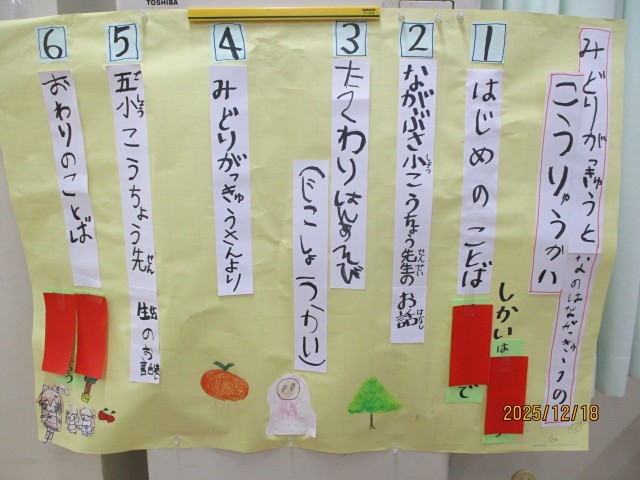 TOSHIBA
みどりがっきゅうと
なのはながっきゅうの
こうりゅうかい
1
はじめのことば
しかいは
で
2
ながぶさ小こうちょう先生のお話
しょう
せんせい
はなし
3
たくわりはんあそび
(じこしょうかい)
4
みどりがっきゅうさんより
5
五小こうちょう先生のお話
ご しょう
せん
せい
はなし
6
おわりのことば
2025/12/18